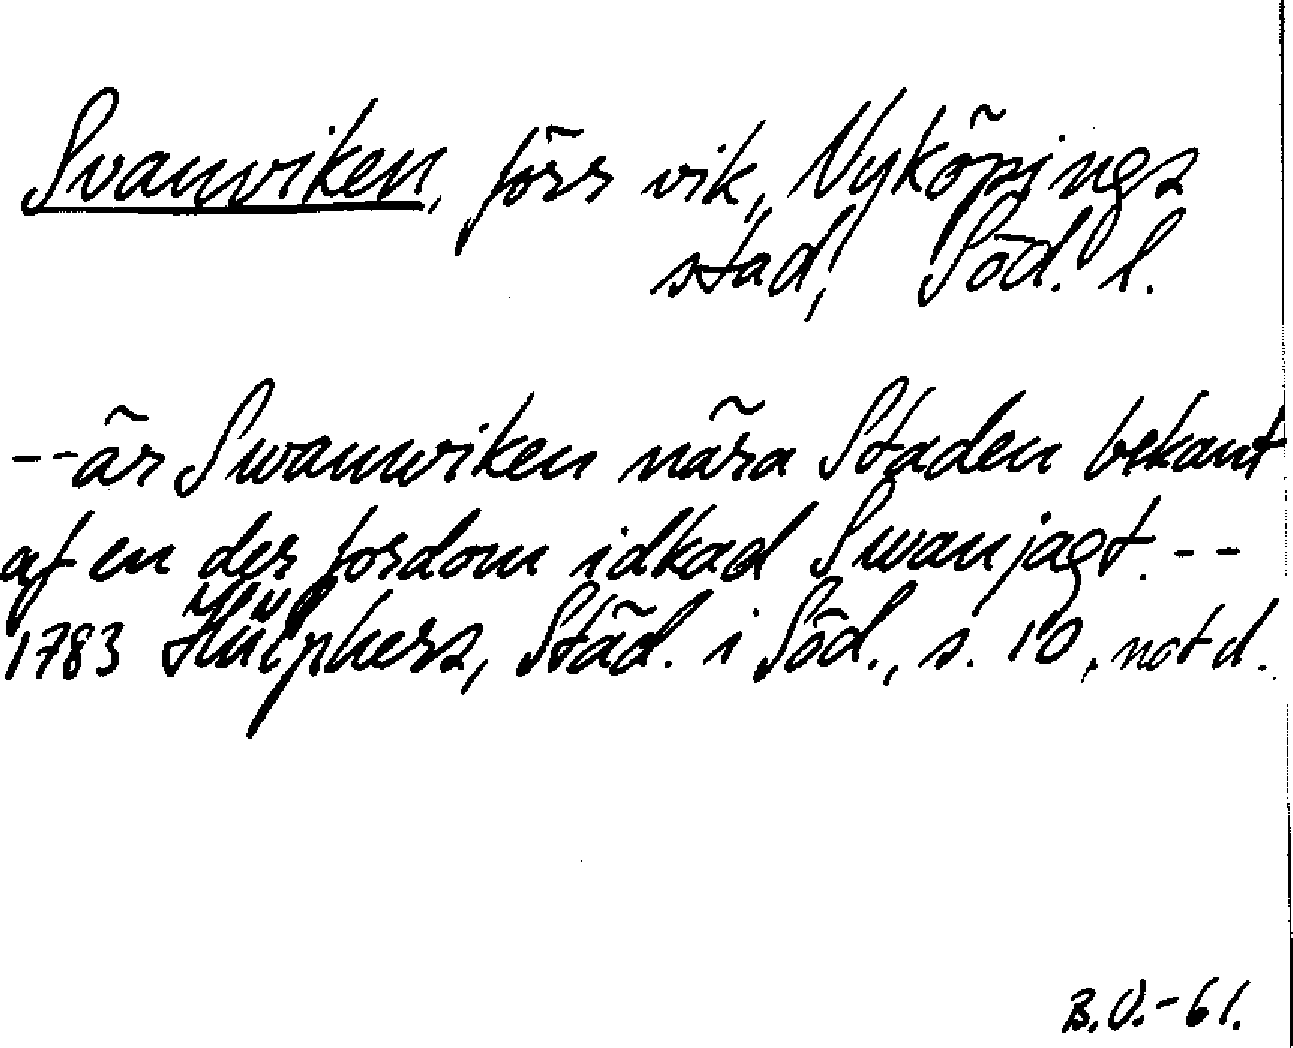 Svanviken, förr vik, Nyköpings
stad, Söd. l.
--är Swanwiken nära Staden bekant
af en der fordom idkad Swanjagt. --
1783 Hülphers, Städ. i Söd., s. 10, not d.
B.O.-61.